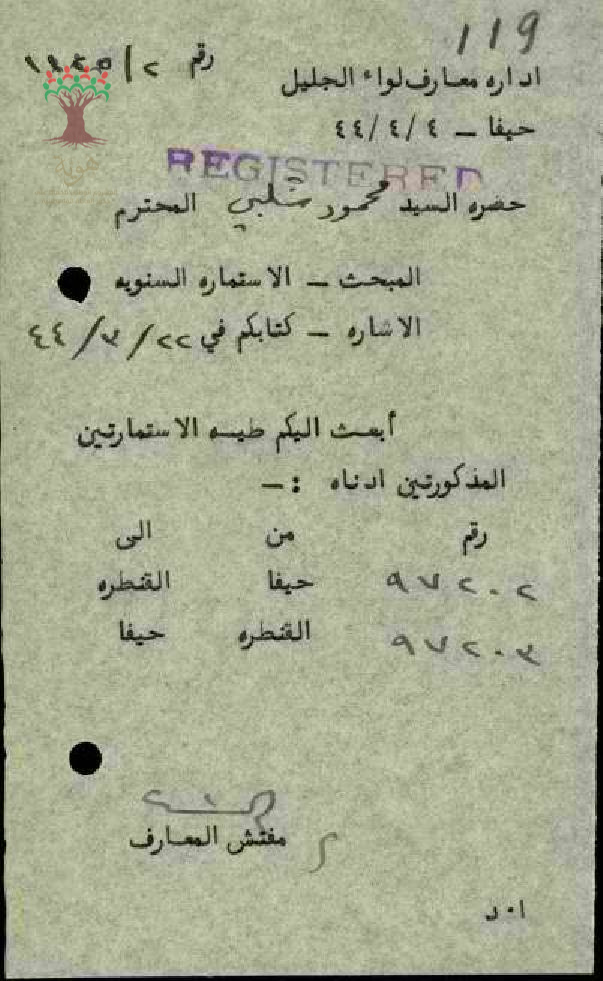 119
رقم ٢/
اداره معارف لواء الجليل
حيفا – ٤/٤/٤٤
REGISTERED
حضره السيد محمود شلبي المحترم
المبحث – الاستماره السنويه
الاشاره – كتابكم في ٢٢/٣/٤٤
أبعث اليكم طيه الاستمارتين
المذكورتين ادناه :–
رقم من الى
٩٧٢٠٢ حيفا القنطره
٩٧٢٠٣ القنطره حيفا
مفتش المعارف